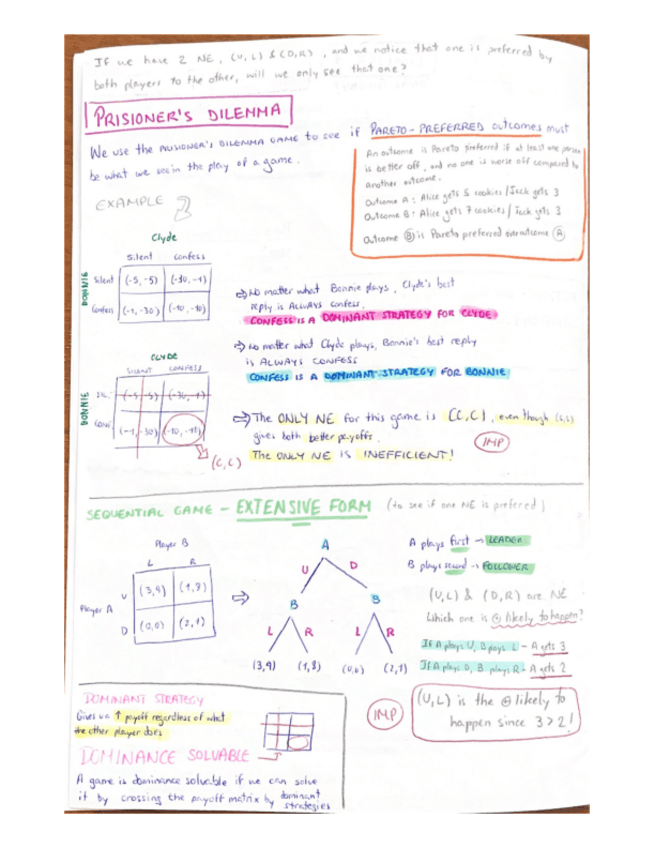 If we have 2 NE, (U,L) & (D,R), and we notice that one is preferred by
both players to the other, will we only see that one?
PRISIONER'S DILEMMA
We use the PRISIONER'S DILEMMA GAME to see if PARETO-PREFERRED outcomes must
be what we see in the play of a game.
An outcome is Pareto preferred if at least one person
is better off, and no one is worse off compared to
another outcome.
Outcome A: Alice gets 5 cookies / Jack gets 3
Outcome B: Alice gets 7 cookies / Jack gets 3
Outcome B is Pareto preferred over outcome A
EXAMPLE
Clyde
Silent Confess
BONNIE
Silent (-5,-5) (-30,-1)
Confess (-1,-30) (-10,-10)
⇒ No matter what Bonnie plays, Clyde's best
reply is ALWAYS confess.
CONFESS IS A DOMINANT STRATEGY FOR CLYDE
⇒ No matter what Clyde plays, Bonnie's best reply
is ALWAYS CONFESS
CONFESS IS A DOMINANT STRATEGY FOR BONNIE
CLYDE
SILENT CONFESS
BONNIE
SIL. (-5,-5) (-30,-1)
CONF (-1,-30) (-10,-10)
(C,C)
⇒ The ONLY NE for this game is (C,C), even though (S,S)
gives both better payoffs.
The ONLY NE IS INEFFICIENT!
IMP
SEQUENTIAL GAME - EXTENSIVE FORM (to see if one NE is prefered)
Player B
L R
Player A
U (3,9) (1,8)
D (0,0) (2,1)
A
U D
B B
L R L R
(3,9) (1,8) (0,0) (2,1)
A plays first → LEADER
B plays second → FOLLOWER
(U,L) & (D,R) are NE
Which one is ⊕ likely to happen?
If A plays U, B plays L - A gets 3
If A plays D, B plays R - A gets 2
IMP
(U,L) is the ⊕ likely to
happen since 3>2!
DOMINANT STRATEGY
Gives us ↑ payoff regardless of what
the other player does
DOMINANCE SOLVABLE
A game is dominance solvable if we can solve
it by crossing the payoff matrix by dominant
strategies